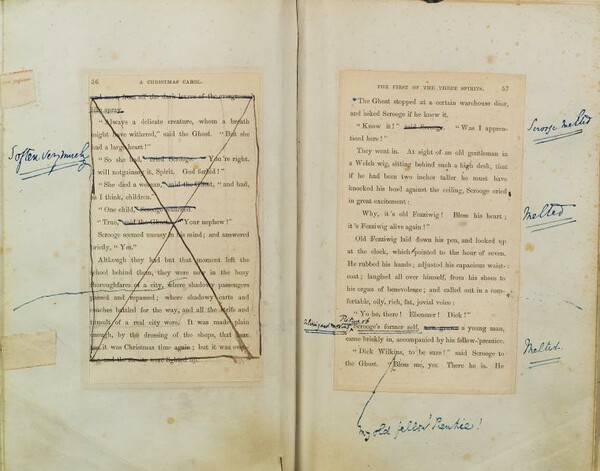 56 A CHRISTMAS CAROL.
and snow, from off the dark leaves of the evergreens
like spray.
"Always a delicate creature, whom a breath
might have withered," said the Ghost. "But she
had a large heart!"
Soften very much
"So she had," cried Scrooge. "You're right.
will not gainsay it, Spirit. God forbid!"
"She died a woman," said the Ghost, "and had,
as I think, children."
"One child," Scrooge returned.
"True," said the Ghost. "Your nephew!"
Scrooge seemed uneasy in his mind; and answered
briefly, "Yes."
Although they had but that moment left the
school behind them, they were now in the busy
thoroughfares of a city, where shadowy passengers
passed and repassed; where shadowy carts and
coaches battled for the way, and all the strife and
tumult of a real city were. It was made plain
enough, by the dressing of the shops, that here
too it was Christmas time again; but it was evening,
and the streets were lighted up.
THE FIRST OF THE THREE SPIRITS. 57
The Ghost stopped at a certain warehouse door,
and asked Scrooge if he knew it.
"Know it!" said Scrooge. "Was I appren-
ticed here!"
Scrooge melted
They went in. At sight of an old gentleman in
a Welch wig, sitting behind such a high desk, that
if he had been two inches taller he must have
knocked his head against the ceiling, Scrooge cried
in great excitement:
"Why, it's old Fezziwig! Bless his heart;
it's Fezziwig alive again!"
Melted
Old Fezziwig laid down his pen, and looked up
at the clock, which pointed to the hour of seven.
He rubbed his hands; adjusted his capacious waist-
coat; laughed all over himself, from his shoes to
his organ of benevolence; and called out in a com-
fortable, oily, rich, fat, jovial voice:
"Yo ho, there! Ebenezer! Dick!"
Scrooge's former self, a young man,
came briskly in, accompanied by his fellow-'prentice.
"Dick Wilkins, to be sure!" said Scrooge to
the Ghost. "Bless me, yes. There he is. He
Melted
my old fellow 'Prentice!